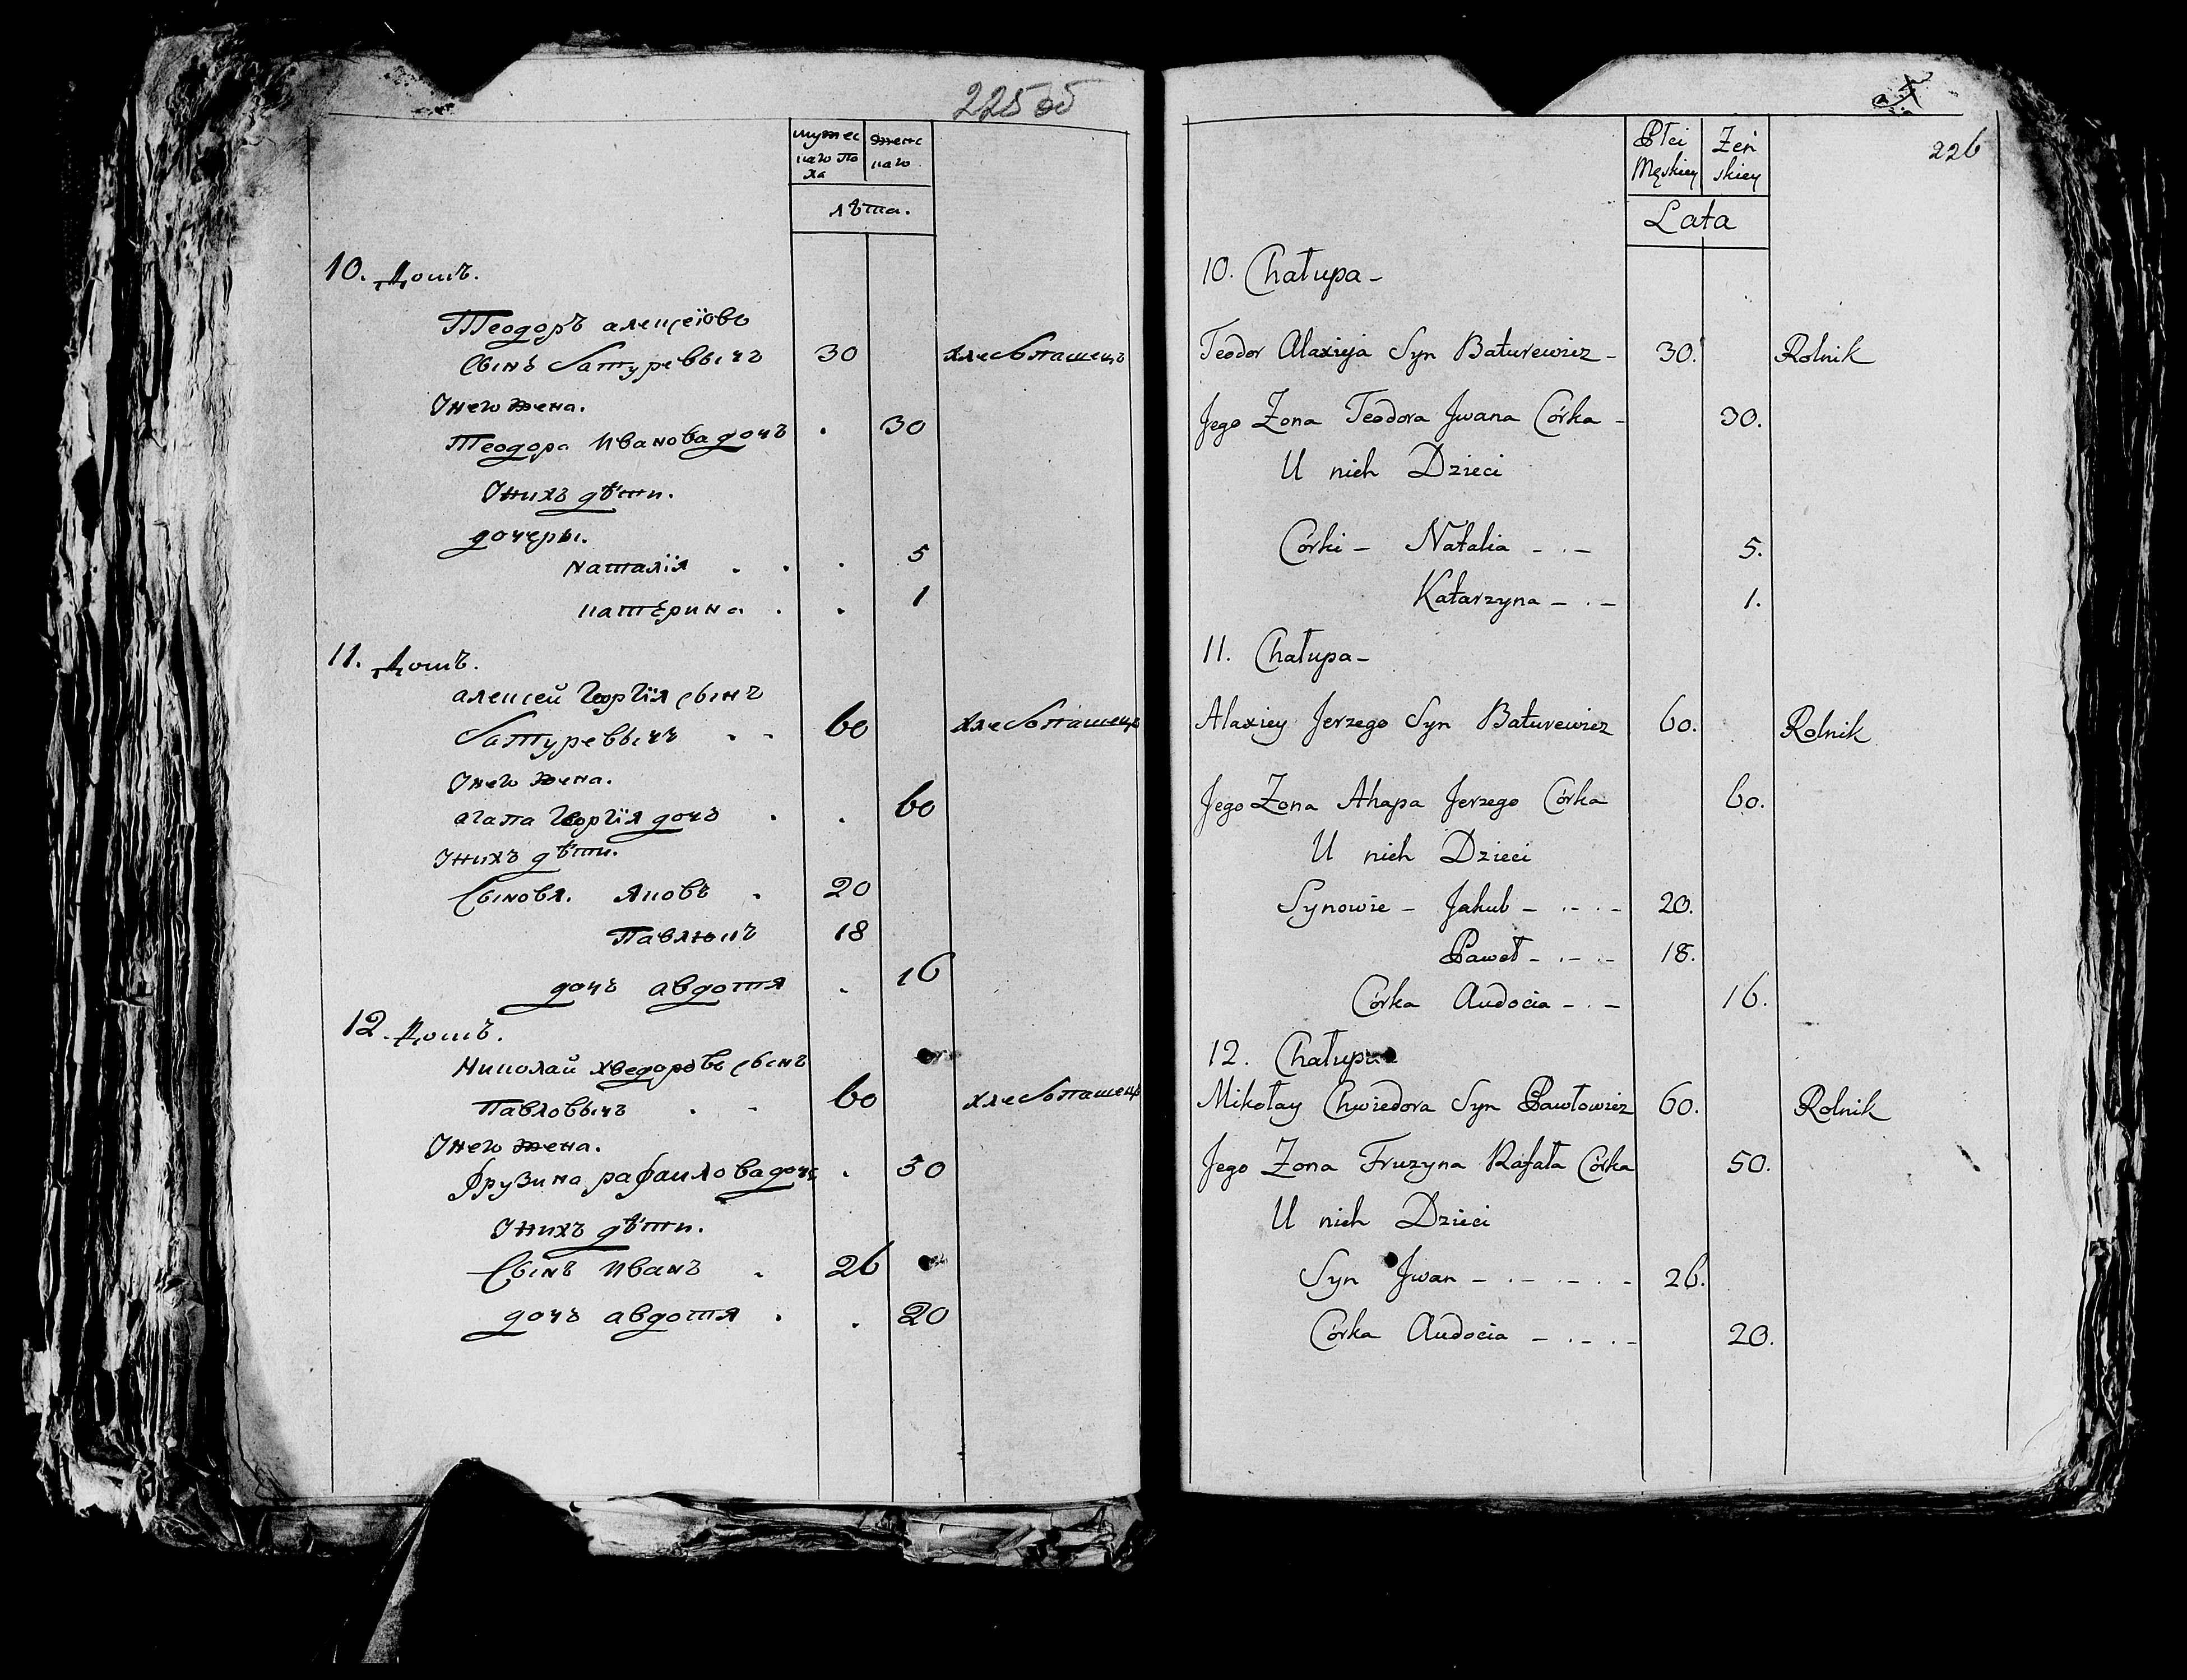 225 об
мужес
каго по
ла
женс
каго
лѣта.
10. Домъ.
Теодоръ алексѣіовъ
Сынъ Батуревычъ 30 хлебопашецъ
Унего жена.
Теодора Иванова дочъ . 30
Унихъ дѣти.
дочеры.
наталія . . . 5
катерина . . 1
11. Домъ.
алексей Георгія сынъ
Батуревычъ . . 60 хлебопашецъ
Унего жена.
агапа Георгія дочъ . . 60
Унихъ дѣти.
Сыновя. Яковъ . 20
Павлюкъ 18
дочъ авдотя . 16
12. Домъ.
Николай хведоровъ сынъ
Павловычъ . . 60 хлебопашецъ
Унего жена.
Фрузина рафаилова дочъ . 50
Унихъ дѣти.
Сынъ Иванъ . 26
дочъ авдотя . . 20
226
Płci
Męskiey
Żeń
skiey
Lata
10. Chałupa –
Teodor Alaxieja Syn Baturewicz – 30. Rolnik
Jego Żona Teodora Jwana Córka – 30.
U nich Dzieci
Córki – Natalia – . – 5.
Katarzyna – . – 1.
11. Chałupa –
Alaxiey Jerzego Syn Baturewicz 60. Rolnik
Jego Żona Ahapa Jerzego Córka 60.
U nich Dzieci
Synowie – Jakub – . – . – 20.
Paweł – . – . – 18.
Córka Audocia – . – 16.
12. Chałupa
Mikołay Chwiedora Syn Pawłowicz 60. Rolnik
Jego Żona Fruzyna Rafała Córka 50.
U nich Dzieci
Syn Jwan – . – . – . – 26.
Córka Audocia – . – . – 20.